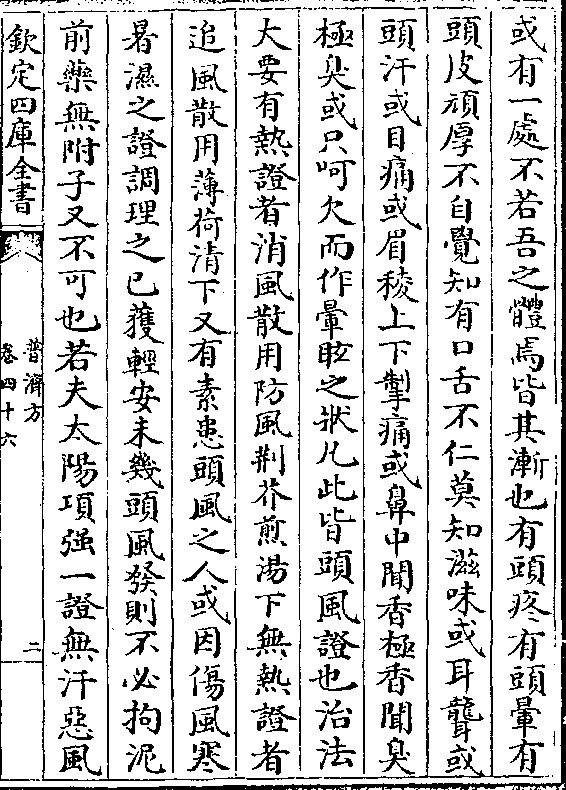 或有一處不若吾之體焉皆其漸也有頭疼有頭暈有
頭皮頑厚不自覺知有口舌不仁莫知滋味或耳聾或
頭汗或目痛或眉稜上下掣痛或鼻中聞香極香聞臭
極臭或只呵欠而作暈眩之狀凡此皆頭風證也治法
大要有熱證者消風散用防風荆芥煎湯下無熱證者
追風散用薄荷清下又有素患頭風之人或因傷風寒
暑濕之證調理之已獲輕安未幾頭風發則不必拘泥
前藥無附子又不可也若夫太陽項强一證無汗惡風
欽定四庫全書
普濟方
卷四十六
二